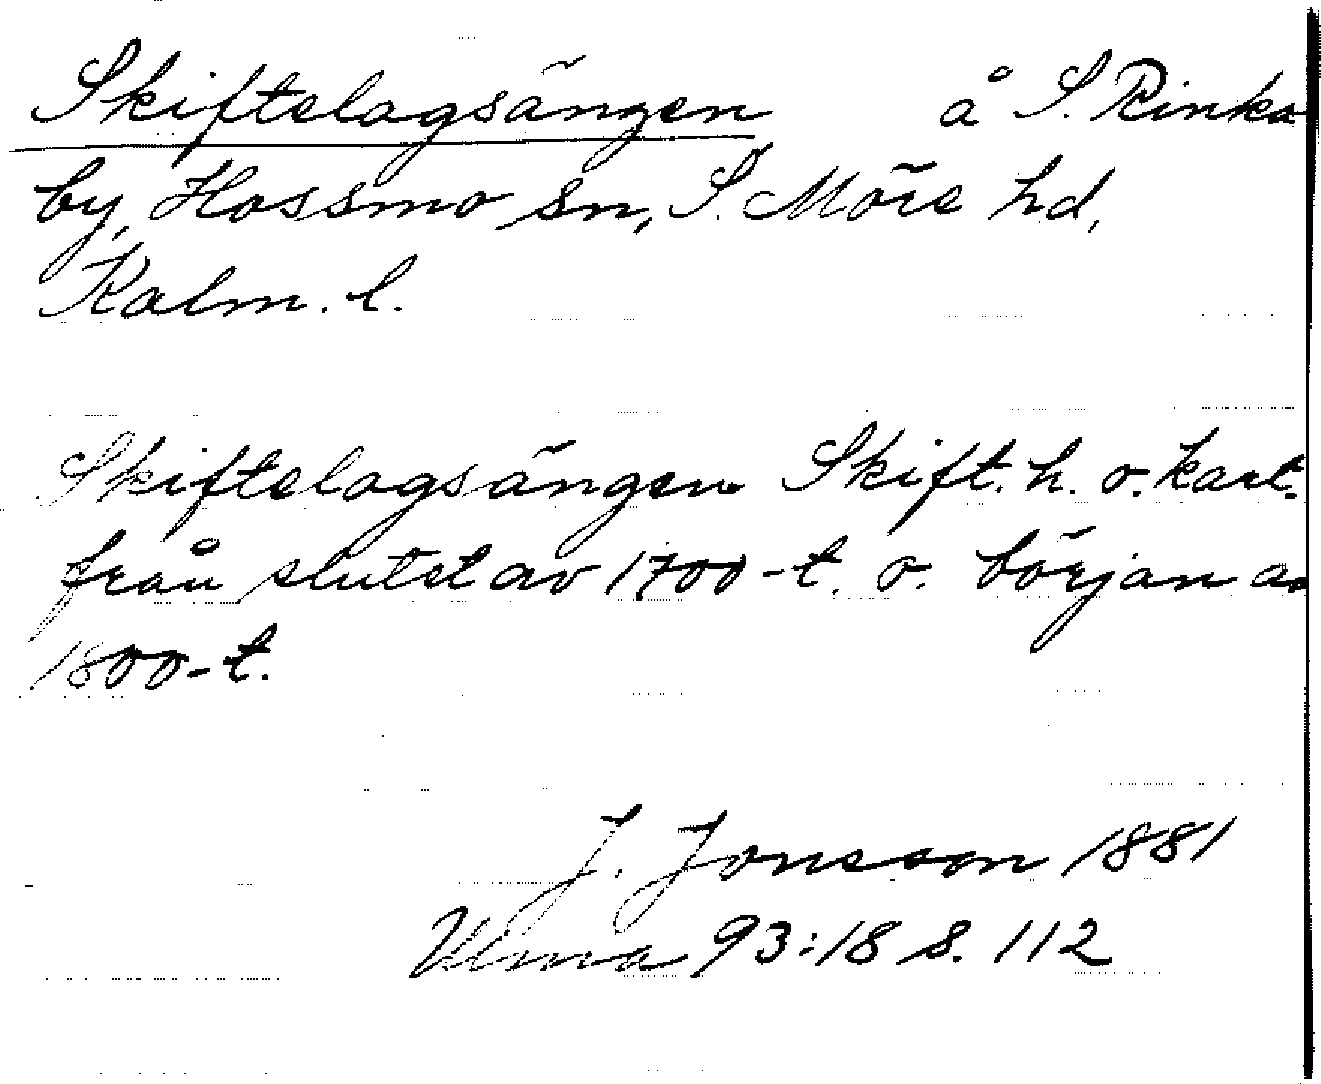 Skiftelagsängen å S. Rinka
by, Hossmo sn, S. Möre hd,
Kalm. l.
Skiftelagsängen Skift. h. o. kart.
från slutet av 1700-t. o. början av
1800-t.
J. Jonsson 1881
Ulma 93:18 s. 112